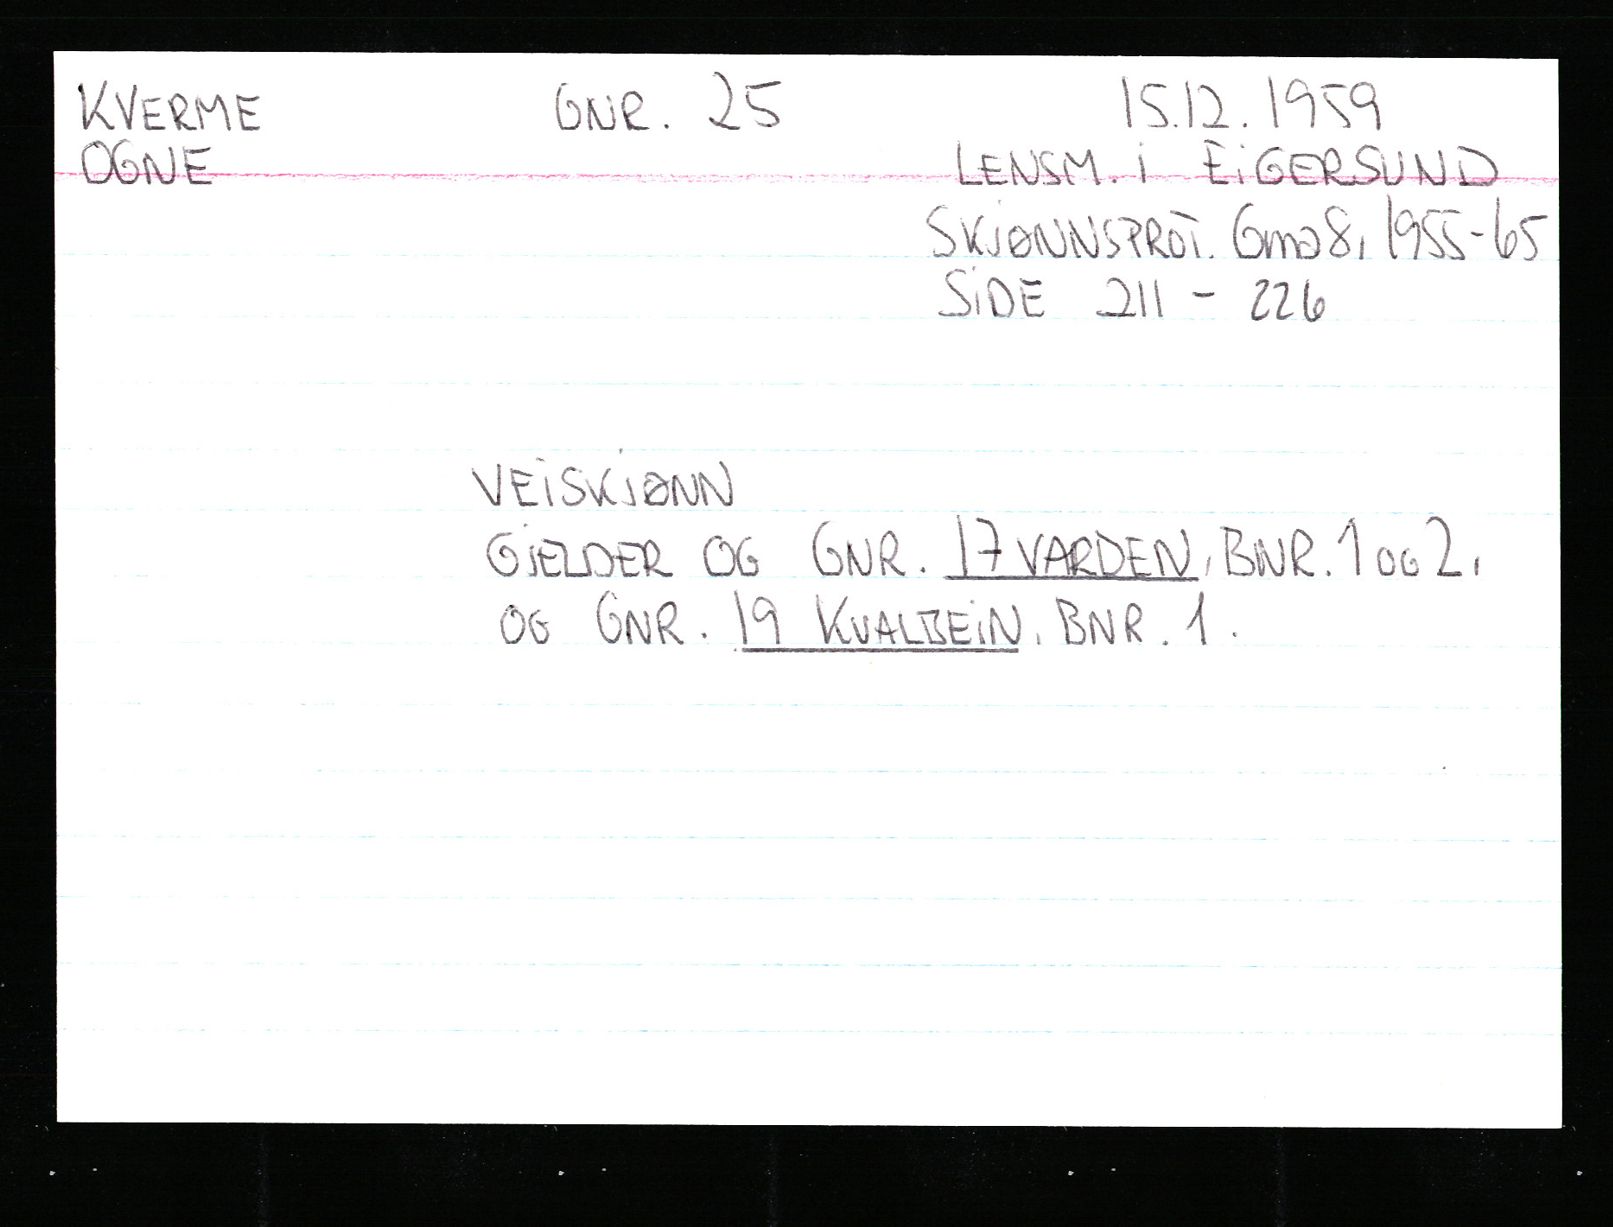 KVERME GNR. 25 15.12.1959
OGNE LENSM. i EiGERSUND
SKJØNNSPROT. Gma 8, 1955-65
SiDE 211 - 226
VEiSKJØNN
GJELDER OG GNR. 17 VARDEN, BNR. 1 OG 2,
OG GNR. 19 KVALBEiN, BNR. 1.